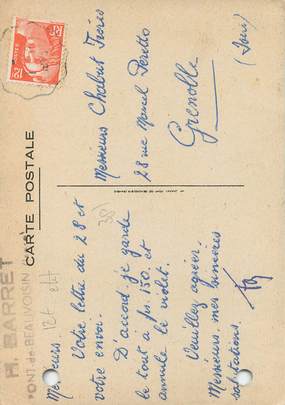 CARTE POSTALE
H. BARRET
PONT-de-BEAUVOISIN
Messieurs,
Votre lettre du 28 et
votre envoi.
D'accord, je garde
le tout à fr. 150. et
annule le violet.
Veuillez agréer,
Messieurs, mes sincères
salutations.
Messieurs Chabut Frères
28 rue Marcel Peretto
Grenoble
(Isère)